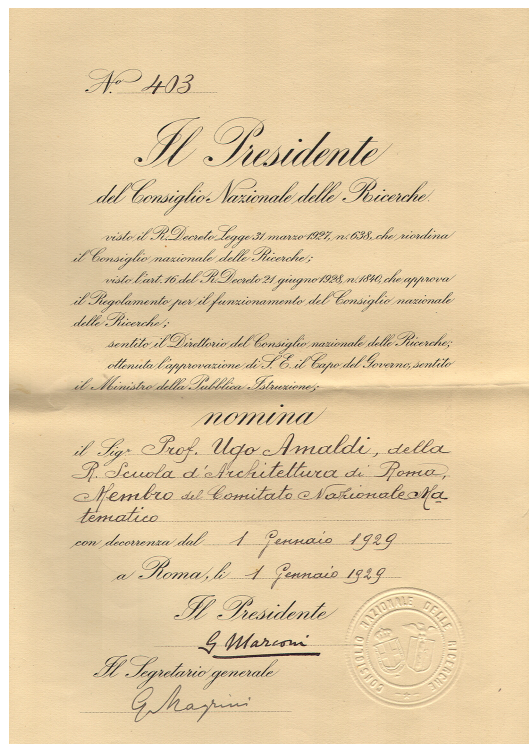 N.º 403
Il Presidente
del Consiglio Nazionale delle Ricerche.
visto il R. Decreto Legge 31 marzo 1927, n. 638, che riordina
il Consiglio nazionale delle Ricerche;
visto l'art. 16 del R. Decreto 21 giugno 1928, n. 1840, che approva
il Regolamento per il funzionamento del Consiglio nazionale
delle Ricerche;
sentito il Direttorio del Consiglio nazionale delle Ricerche;
ottenuta l'approvazione di S. E. il Capo del Governo, sentito
il Ministro della Pubblica Istruzione;
nomina
il Sigr Prof. Ugo Amaldi, della
R. Scuola d'Architettura di Roma,
Membro del Comitato Nazionale Ma
tematico
con decorrenza dal 1 Gennaio 1929
a Roma, li 1 Gennaio 1929
Il Presidente
G Marconi
Il Segretario generale
G. Magrini
CONSIGLIO NAZIONALE DELLE RICERCHE